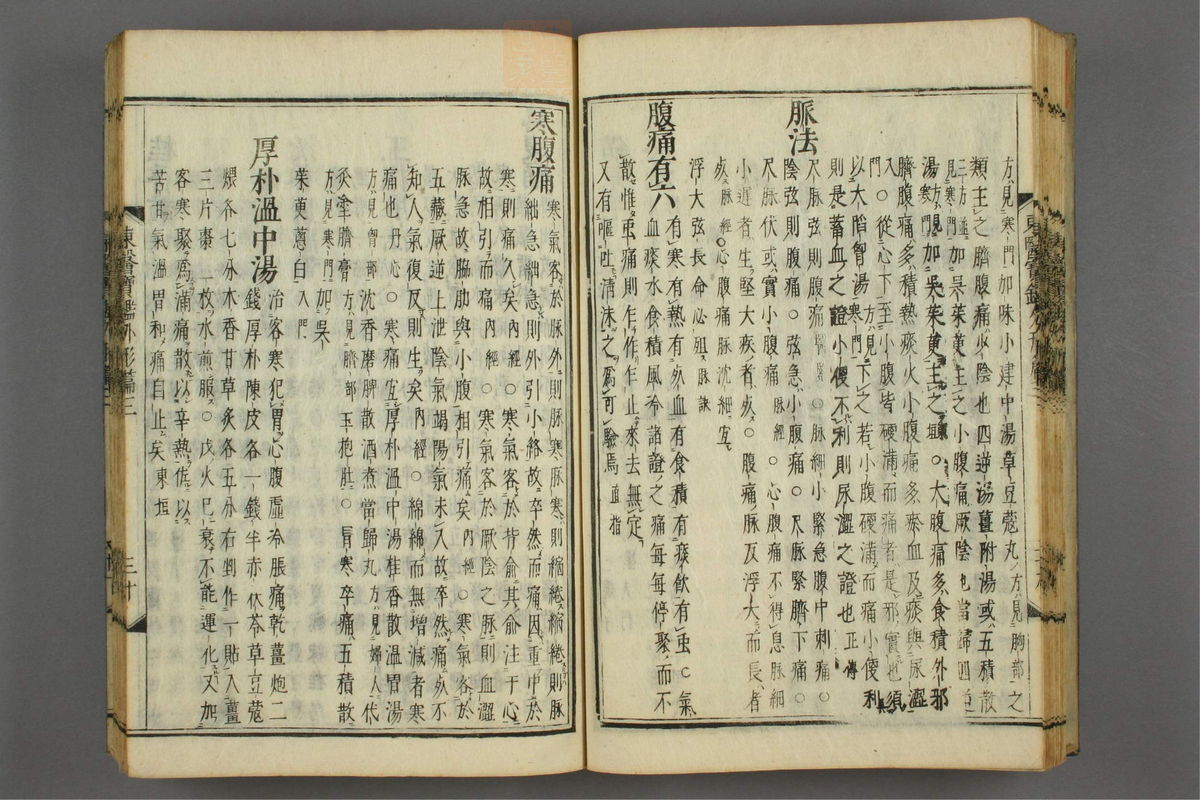 方見寒門加味小建中湯草豆蔻丸方見胸部之
類主之臍腹痛少陰也四逆湯薑附湯或五積散
三方並見寒門加吳茱萸主之小腹痛厥陰也當歸四逆
湯方見寒門加吳茱萸主之東垣○大腹痛多食積外邪
臍腹痛多積熱痰火小腹痛多瘀血及痰與尿澁
入門○從心下至小腹皆硬滿而痛者是邪實也須
以大陷胷湯方見寒門下之若小腹硬滿而痛小便利
則是蓄血之證小便不利則尿澀之證也正傳
脈法
尺脉弦則腹痛脉經○脉細小緊急腹中刺痛○
陰弦則腹痛○弦急小腹痛○尺脉緊臍下痛○
尺脉伏或實小腹痛脉經○心腹痛不得息脉細
小遲者生堅大疾者死○腹痛脉反浮大而長者
死脉經○心腹痛脉沈細宜
浮大弦長命必殂脉訣
腹痛有六
有寒有熱有死血有食積有痰飮有虫○氣
血痰水食積風冷諸證之痛每每停聚而不
散惟虫痛則乍作乍止來去無定
又有嘔吐淸沫之爲可驗焉直指
寒腹痛
寒氣客於脉外則脉寒脉寒則縮綣縮綣則脉
絀急絀急則外引小絡故卒然而痛因重中於
寒則痛久矣內經○寒氣客於背俞其俞注于心
故相引而痛內經○寒氣客於厥陰之脉則血澀
脉急故脇肋與小腹相引痛矣內經○寒氣客於
五藏厥逆上泄陰氣竭陽氣未入故卒然痛死不
知人氣復反則生矣內經○綿綿而無增減者寒
痛也丹心○寒痛宜厚朴溫中湯桂香散溫胃湯
方見胷部沈香磨脾散酒煮當歸丸方見婦人代
灸塗臍膏方見臍部玉抱肚○肓寒卒痛五積散
方見寒門加吳
茱萸蔥白入門
厚朴溫中湯
治客寒犯胃心腹虛冷脹痛乾薑炮二
錢厚朴陳皮各一錢半赤茯苓草豆蔻
煨各七分木香甘草炙各五分右剉作一貼入薑
三片棗一枚水煎服○戊火已衰不能運化又加
客寒聚爲滿痛散以辛熱佐以
苦甘氣溫胃和痛自止矣東垣
東醫寶鑑外形篇三
三十